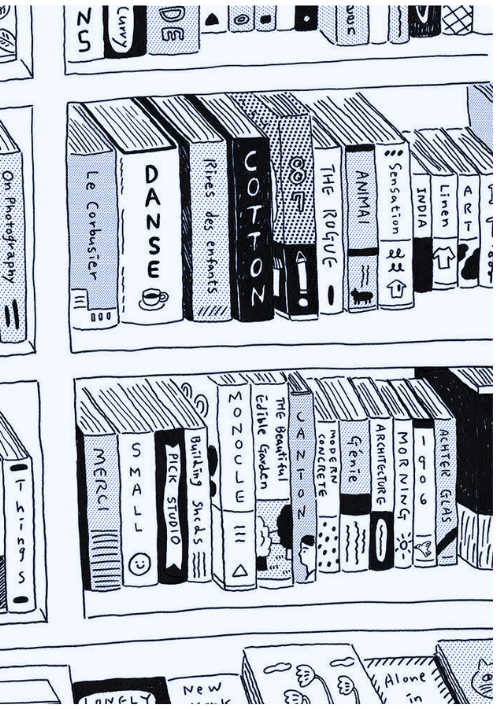 NS
Curvy
DE
On Photography
Le Corbusier
DANSE
Rives des enfants
COTTON
THE ROGUE
ANIMAL
Sensation
INDIA
Linen
ART
Things
MERCI
SMALL
PICK STUDIO
Building Sheds
MONOCLE
THE Beautiful
Edible Garden
CANTON
MODERN
CONCRETE
Génie
ARCHITECTURE
MORNING
1906
ACHTER GLAS
LONELY
New
Alone
in